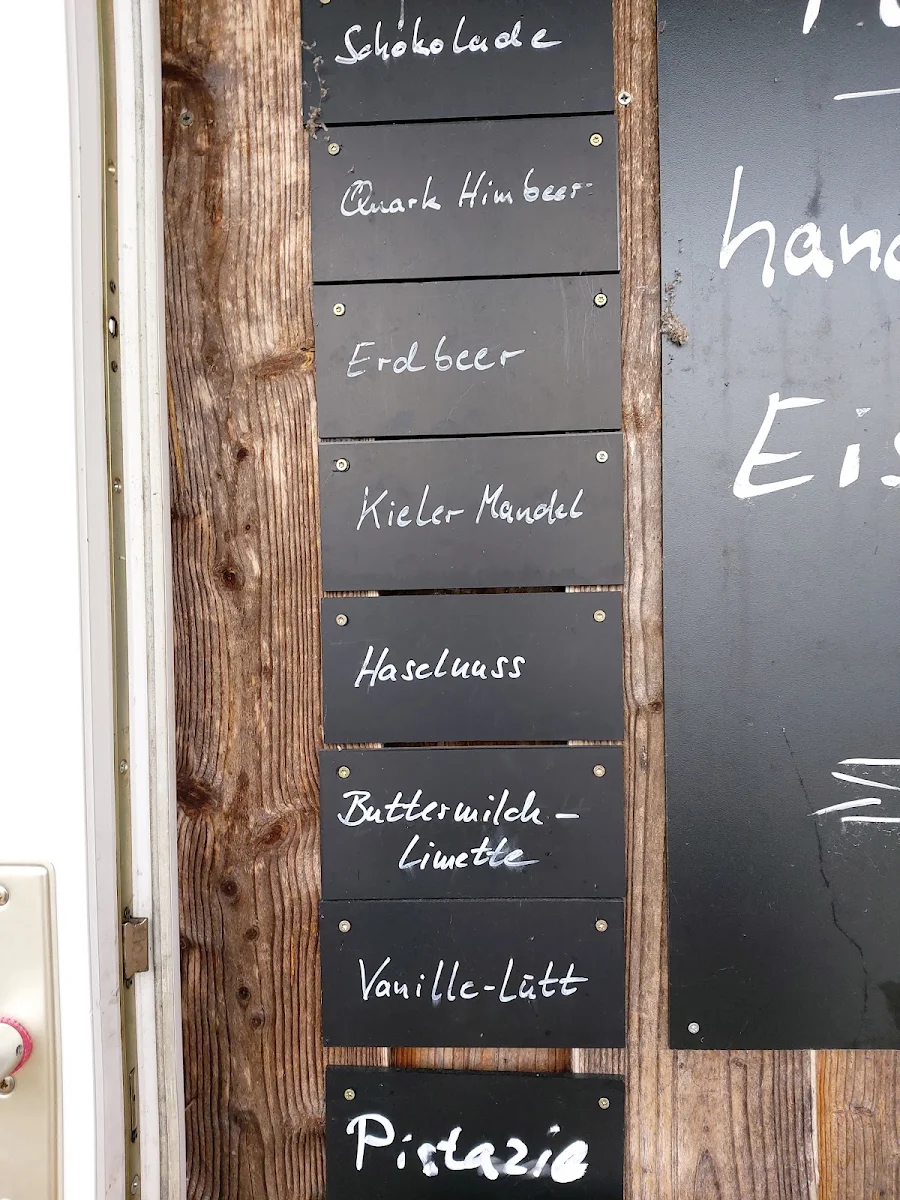 Schokolade
Quark Himbeer
Erdbeer
Kieler Mandel
Haselnuss
Buttermilch-
Limette
Vanille-Lütt
Pistazie
hand
Eis